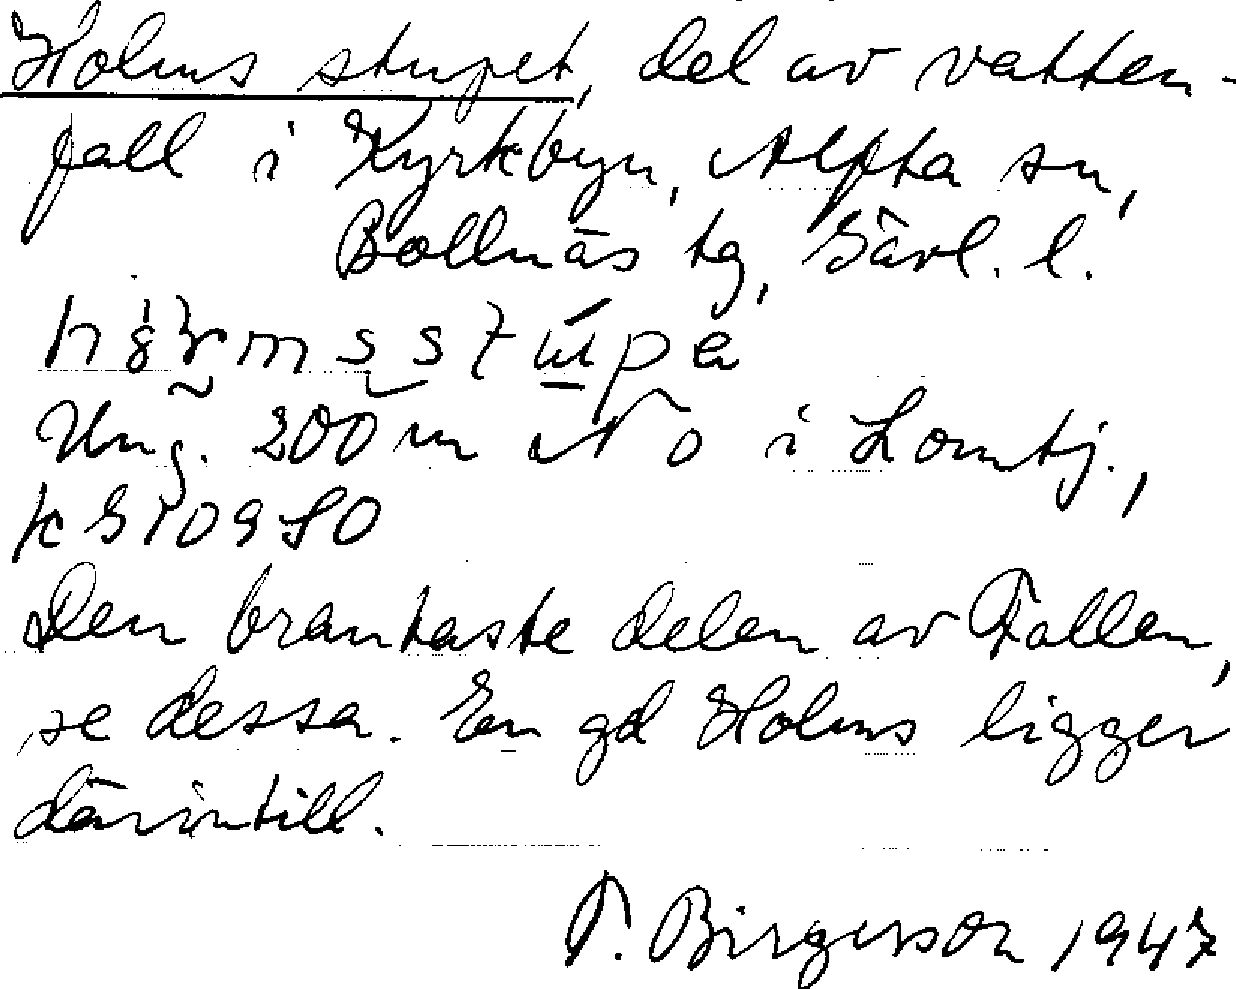 Holms stupet, del av vatten-
fall i Kyrkbyn, Alfta sn,
Bollnäs tg, Gävl. l.
Ung. 200 m NO i Lomtj.,
k 510980
Den brantaste delen av Fallen,
se dessa. En gd Holms ligger
därintill.
T. Birgerson 1947